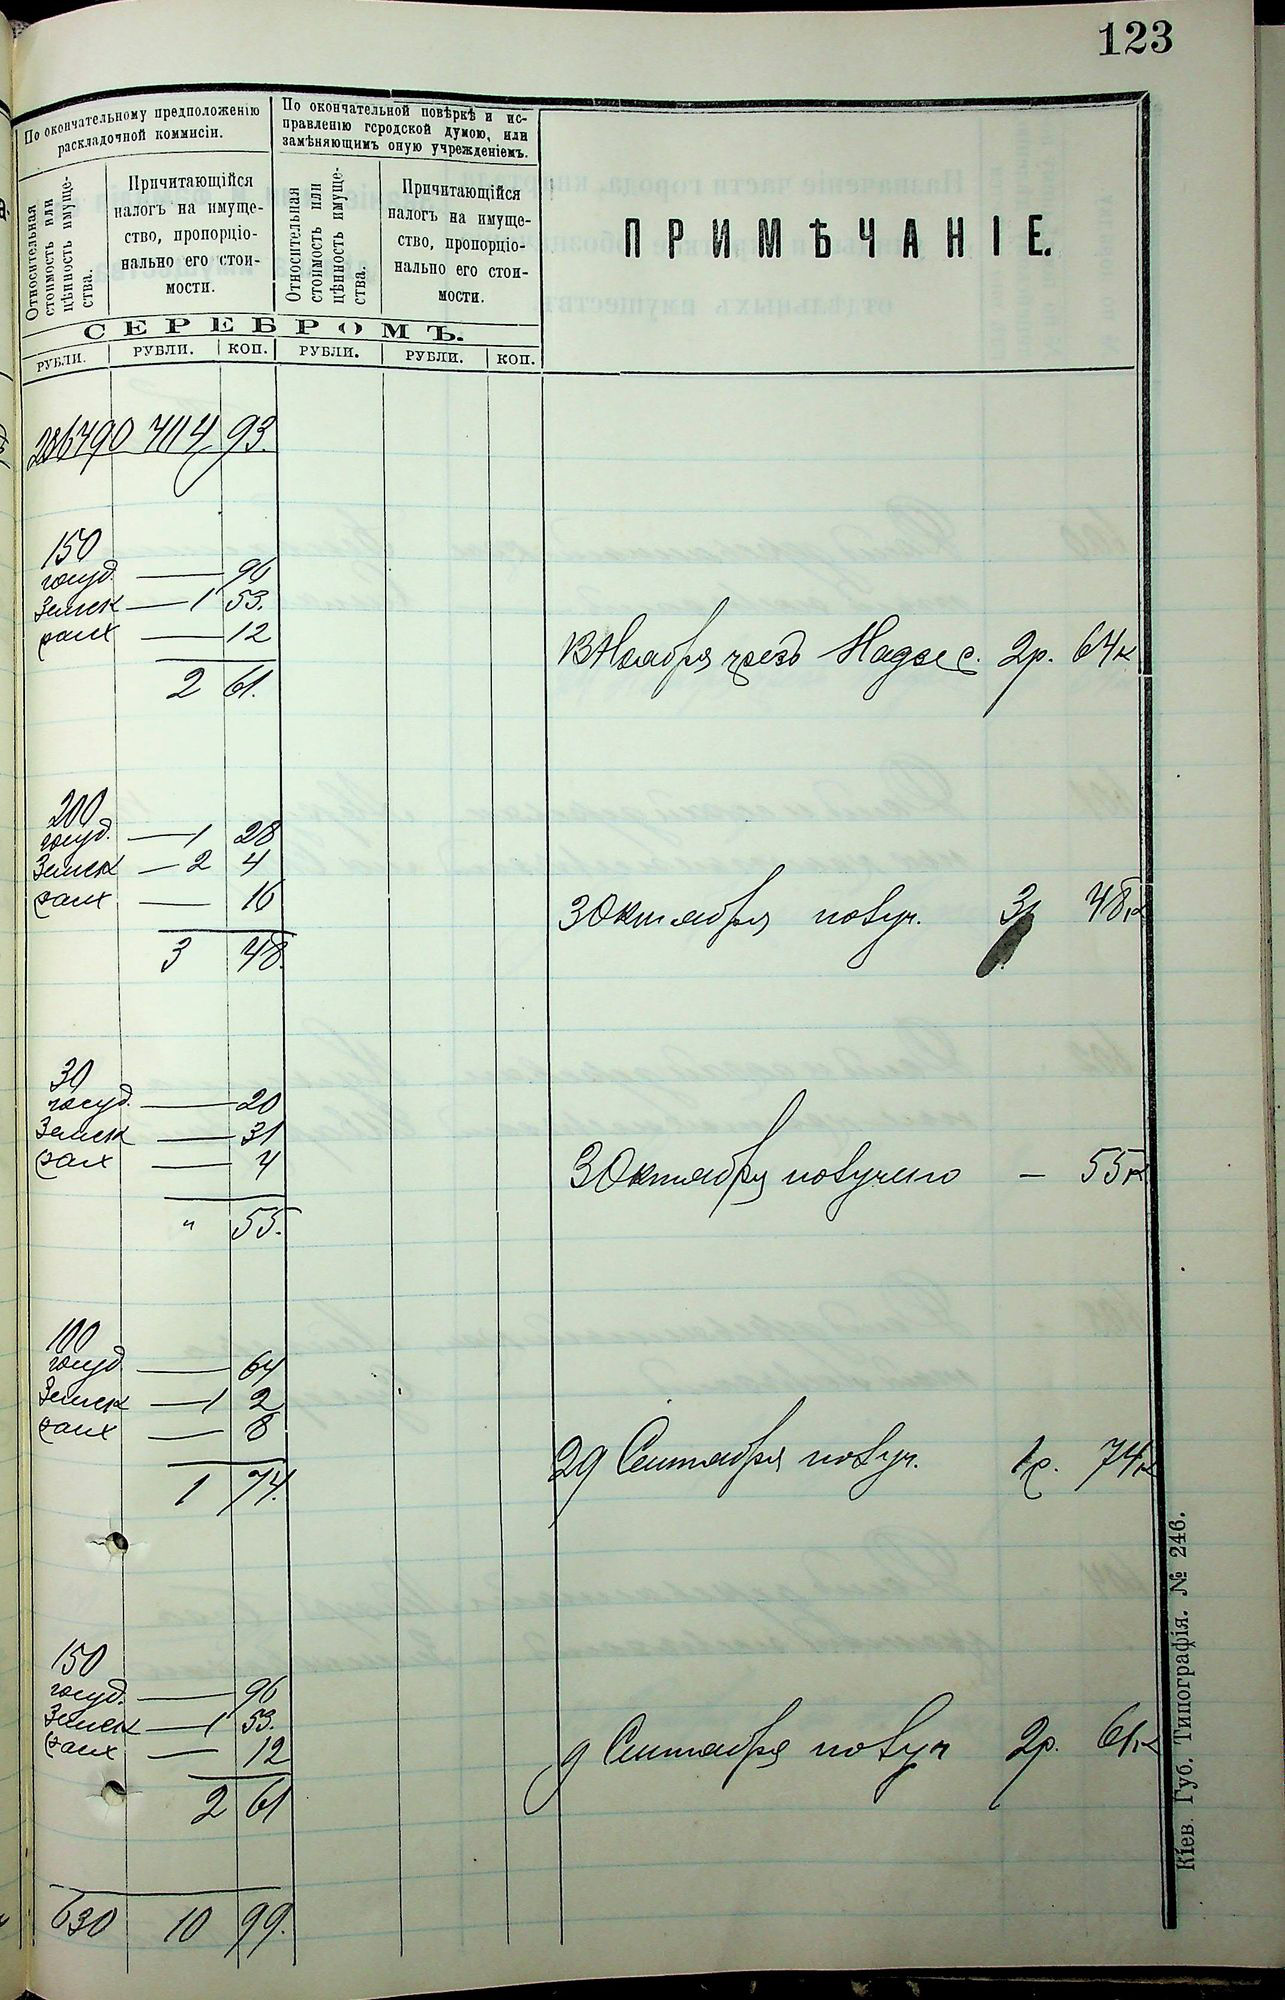 123
По окончательному предположенію
раскладочной коммисіи.
По окончательной повѣркѣ и ис-
правленію городской думою, или
замѣняющимъ оную учрежденіемъ.
Относительная
стоимость или
цѣнность имуще-
ства.
Причитающійся
налогъ на имуще-
ство, пропорціо-
нально его стои-
мости.
Относительная
стоимость или
цѣнность имуще-
ства.
Причитающійся
налогъ на имуще-
ство, пропорціо-
нально его стои-
мости.
ПРИМѢЧАНІЕ.
СЕРЕБРОМЪ.
РУБЛИ. РУБЛИ. КОП. РУБЛИ. РУБЛИ. КОП.
4114 93.
150
госуд. — 96
Земск — 1 53.
— 12
13 Ноября чрезъ 2р. 61к
2 61.
200
госуд. — 1 28
Земск — 2 4
— 16
3 Октября получ. 3р 48к
3 48.
30
госуд. — 20
Земск — 31
— 4
3 Октября получено — 55к
" 55.
100
госуд — 64
Земск — 1 2
— 8
29 Сентября получ. 1р. 74к
1 74.
150
госуд. — 96
Земск — 1 53.
— 12
9 Сентября получ 2р. 61к
2 61
630 10 99.
Кіев. Губ. Типографія. № 246.